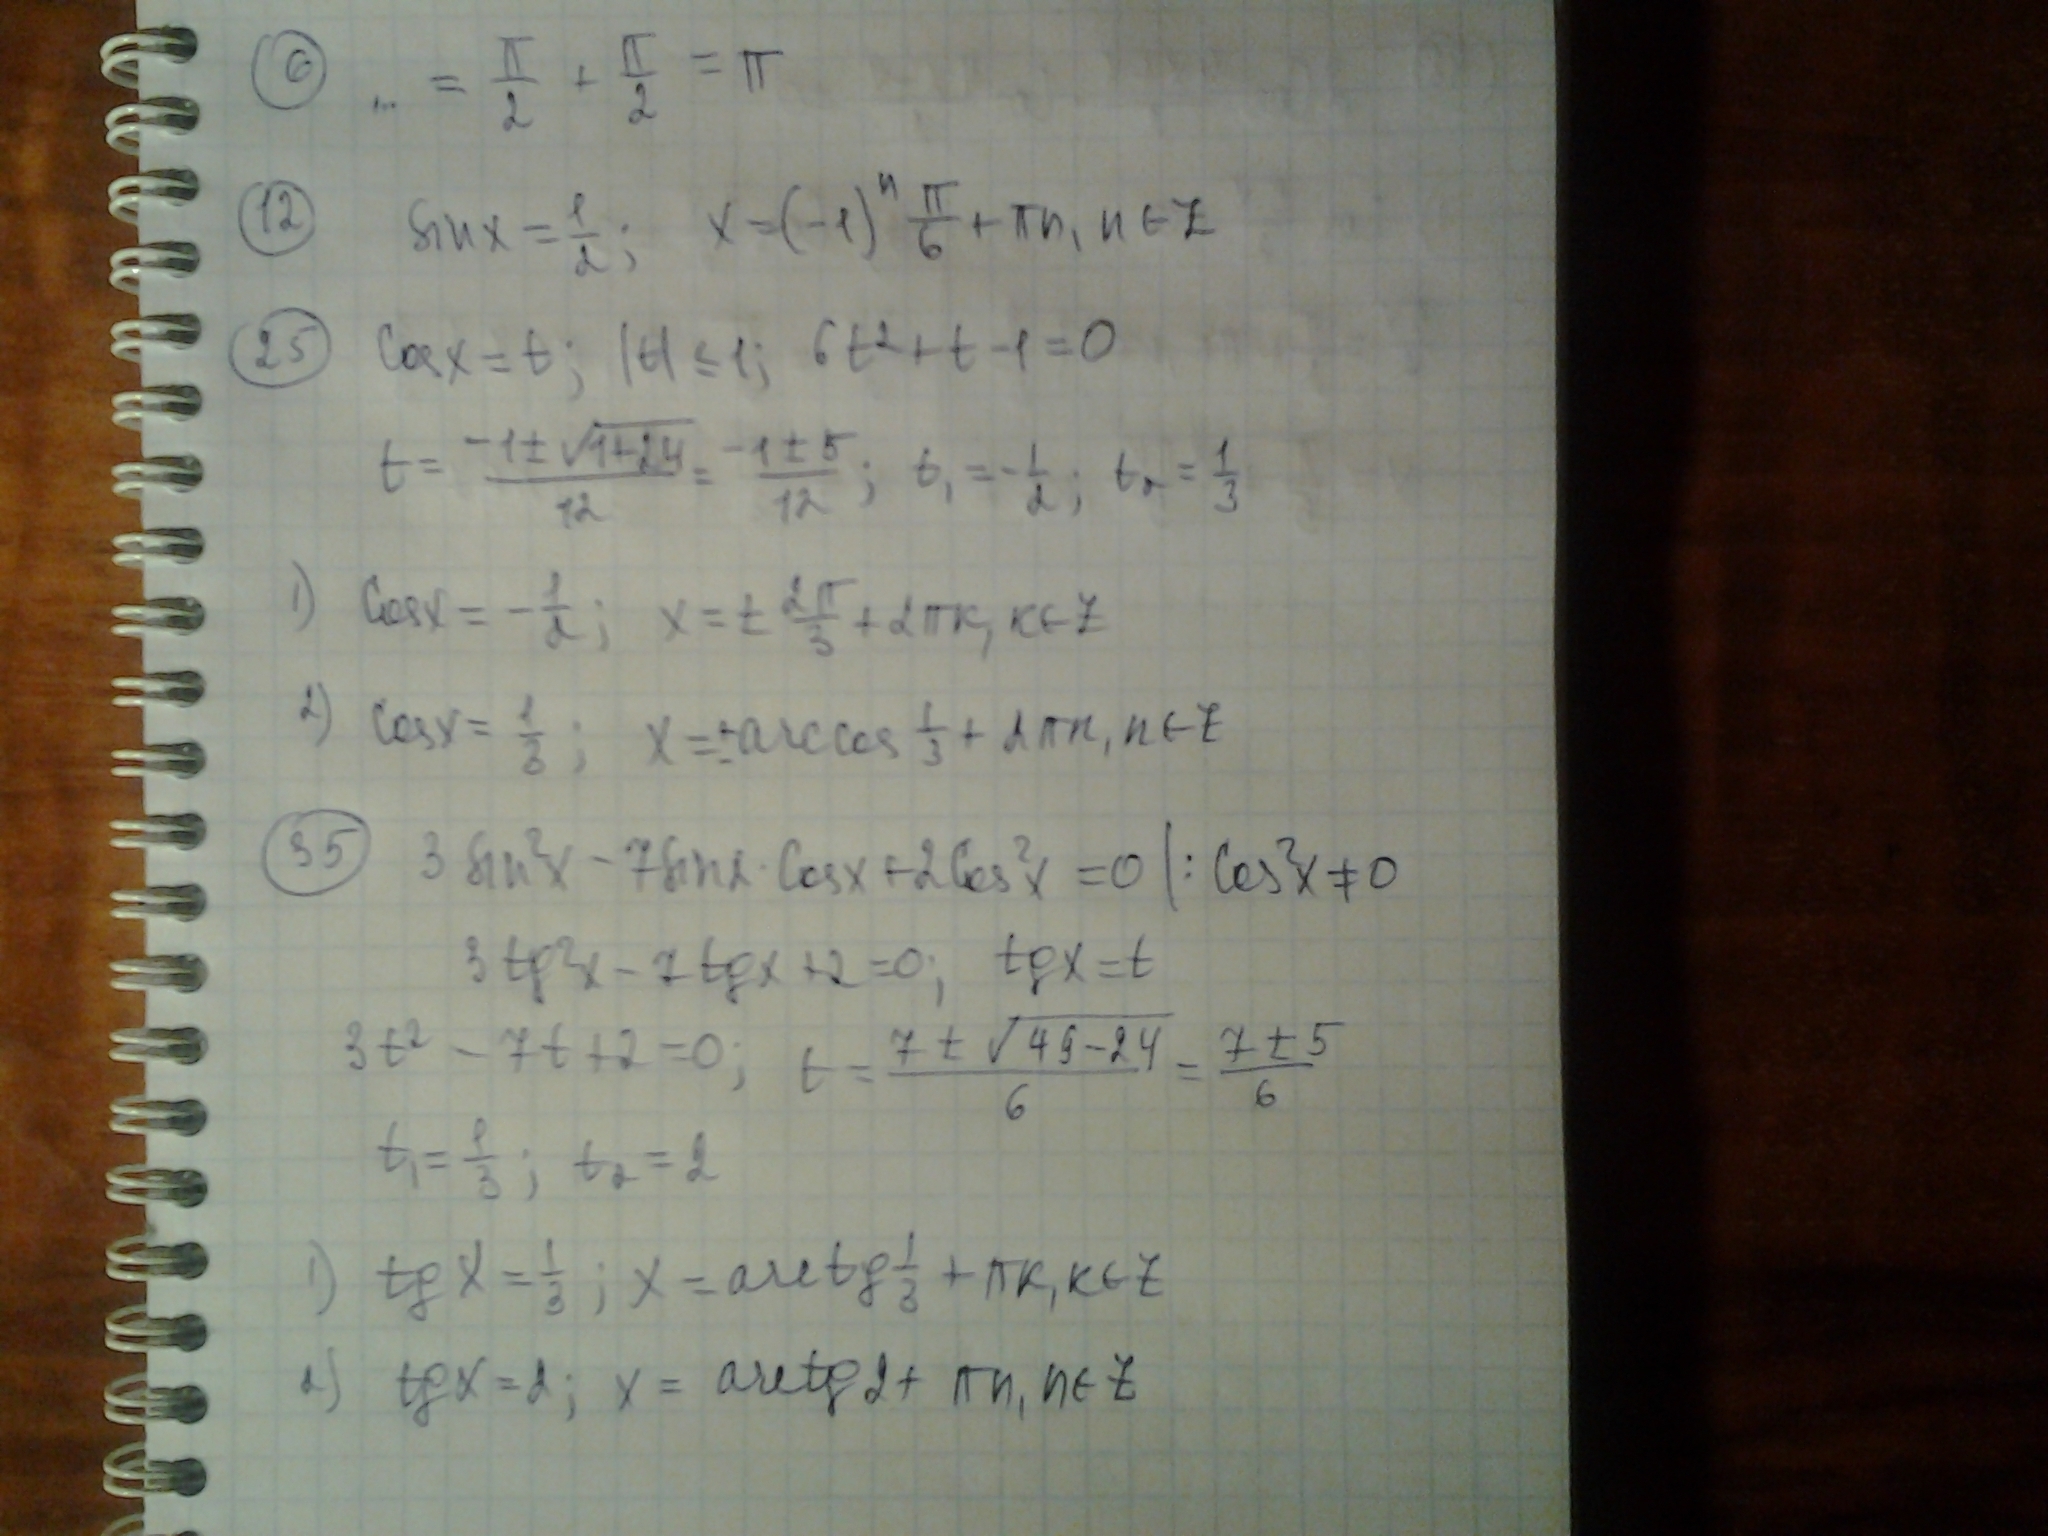 6 ... = π/2 + π/2 = π
12 sinx = 1/2; x = (-1)ⁿ π/6 + πn, n ∈ Z
25 Cosx = t; |t| ≤ 1; 6t² + t - 1 = 0
t = (-1 ± √(1+24))/12 = (-1 ± 5)/12; t₁ = -1/2; t₂ = 1/3
1) Cosx = -1/2; x = ± 2π/3 + 2πk, k ∈ Z
2) Cosx = 1/3; x = ± arccos 1/3 + 2πn, n ∈ Z
35 3 sin²x - 7 sinx · Cosx + 2Cos²x = 0 |: Cos²x ≠ 0
3 tg²x - 7 tgx + 2 = 0; tgx = t
3t² - 7t + 2 = 0; t = (7 ± √(49-24))/6 = (7 ± 5)/6
t₁ = 1/3; t₂ = 2
1) tgx = 1/3; x = arctg 1/3 + πk, k ∈ Z
2) tgx = 2; x = arctg 2 + πn, n ∈ Z